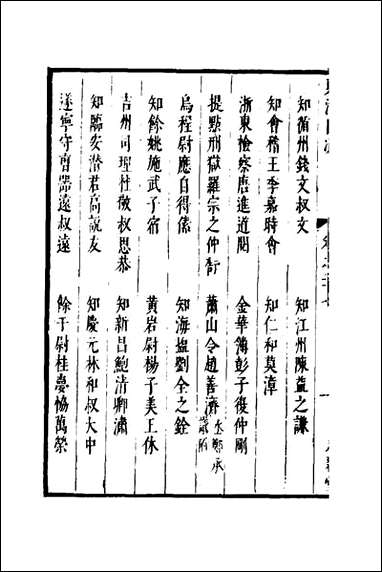 知循州錢文叔文　知江州陳益之謙
知會稽王季嘉時會　知仁和莫漳
浙東檢察唐進道閱　金華簿彭子復仲剛
提點刑獄羅宗之仲　蕭山令趙善濟
烏程尉應自得傃　知海鹽劉全之銓
知餘姚施武子宿　黃岩尉楊子美王休
吉州司理杜敬叔思恭　知新昌鮑清卿潚
知臨安潜君高說友　知慶元林和叔大中
遂寧守曹器遠叔遠　餘干尉桂夢協萬榮